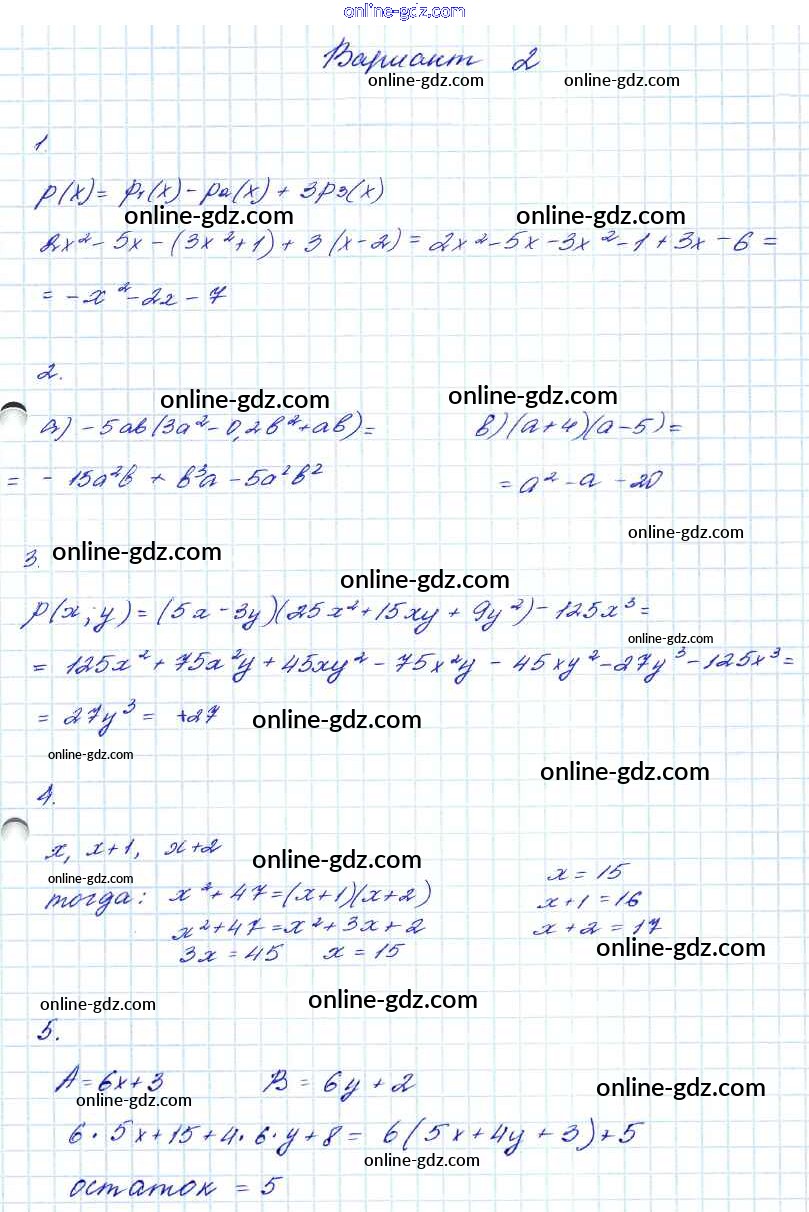 online-gdz.com
Вариант 2
online-gdz.com online-gdz.com
1.
P(x) = P1(x) - P2(x) + 3P3(x)
online-gdz.com online-gdz.com
2x² - 5x - (3x² + 1) + 3(x - 2) = 2x² - 5x - 3x² - 1 + 3x - 6 =
= -x² - 2x - 7
2.
online-gdz.com online-gdz.com
а) -5ab(3a² - 0,2b² + ab) = в) (a + 4)(a - 5) =
= - 15a²b + b³a - 5a²b² = a² - a - 20
online-gdz.com
3. online-gdz.com
online-gdz.com
P(x; y) = (5x - 3y)(25x² + 15xy + 9y²) - 125x³ =
online-gdz.com
= 125x² + 75x²y + 45xy² - 75x²y - 45xy² - 27y³ - 125x³ =
= 27y³ = +27 online-gdz.com
online-gdz.com
online-gdz.com
4.
x, x+1, x+2 online-gdz.com x = 15
online-gdz.com
тогда: x² + 47 = (x+1)(x+2) x+1 = 16
x² + 47 = x² + 3x + 2 x + 2 = 17
3x = 45 x = 15 online-gdz.com
online-gdz.com online-gdz.com
5.
A = 6x + 3 B = 6y + 2 online-gdz.com
online-gdz.com
6 · 5x + 15 + 4 · 6 · y + 8 = 6(5x + 4y + 3) + 5
online-gdz.com
остаток = 5